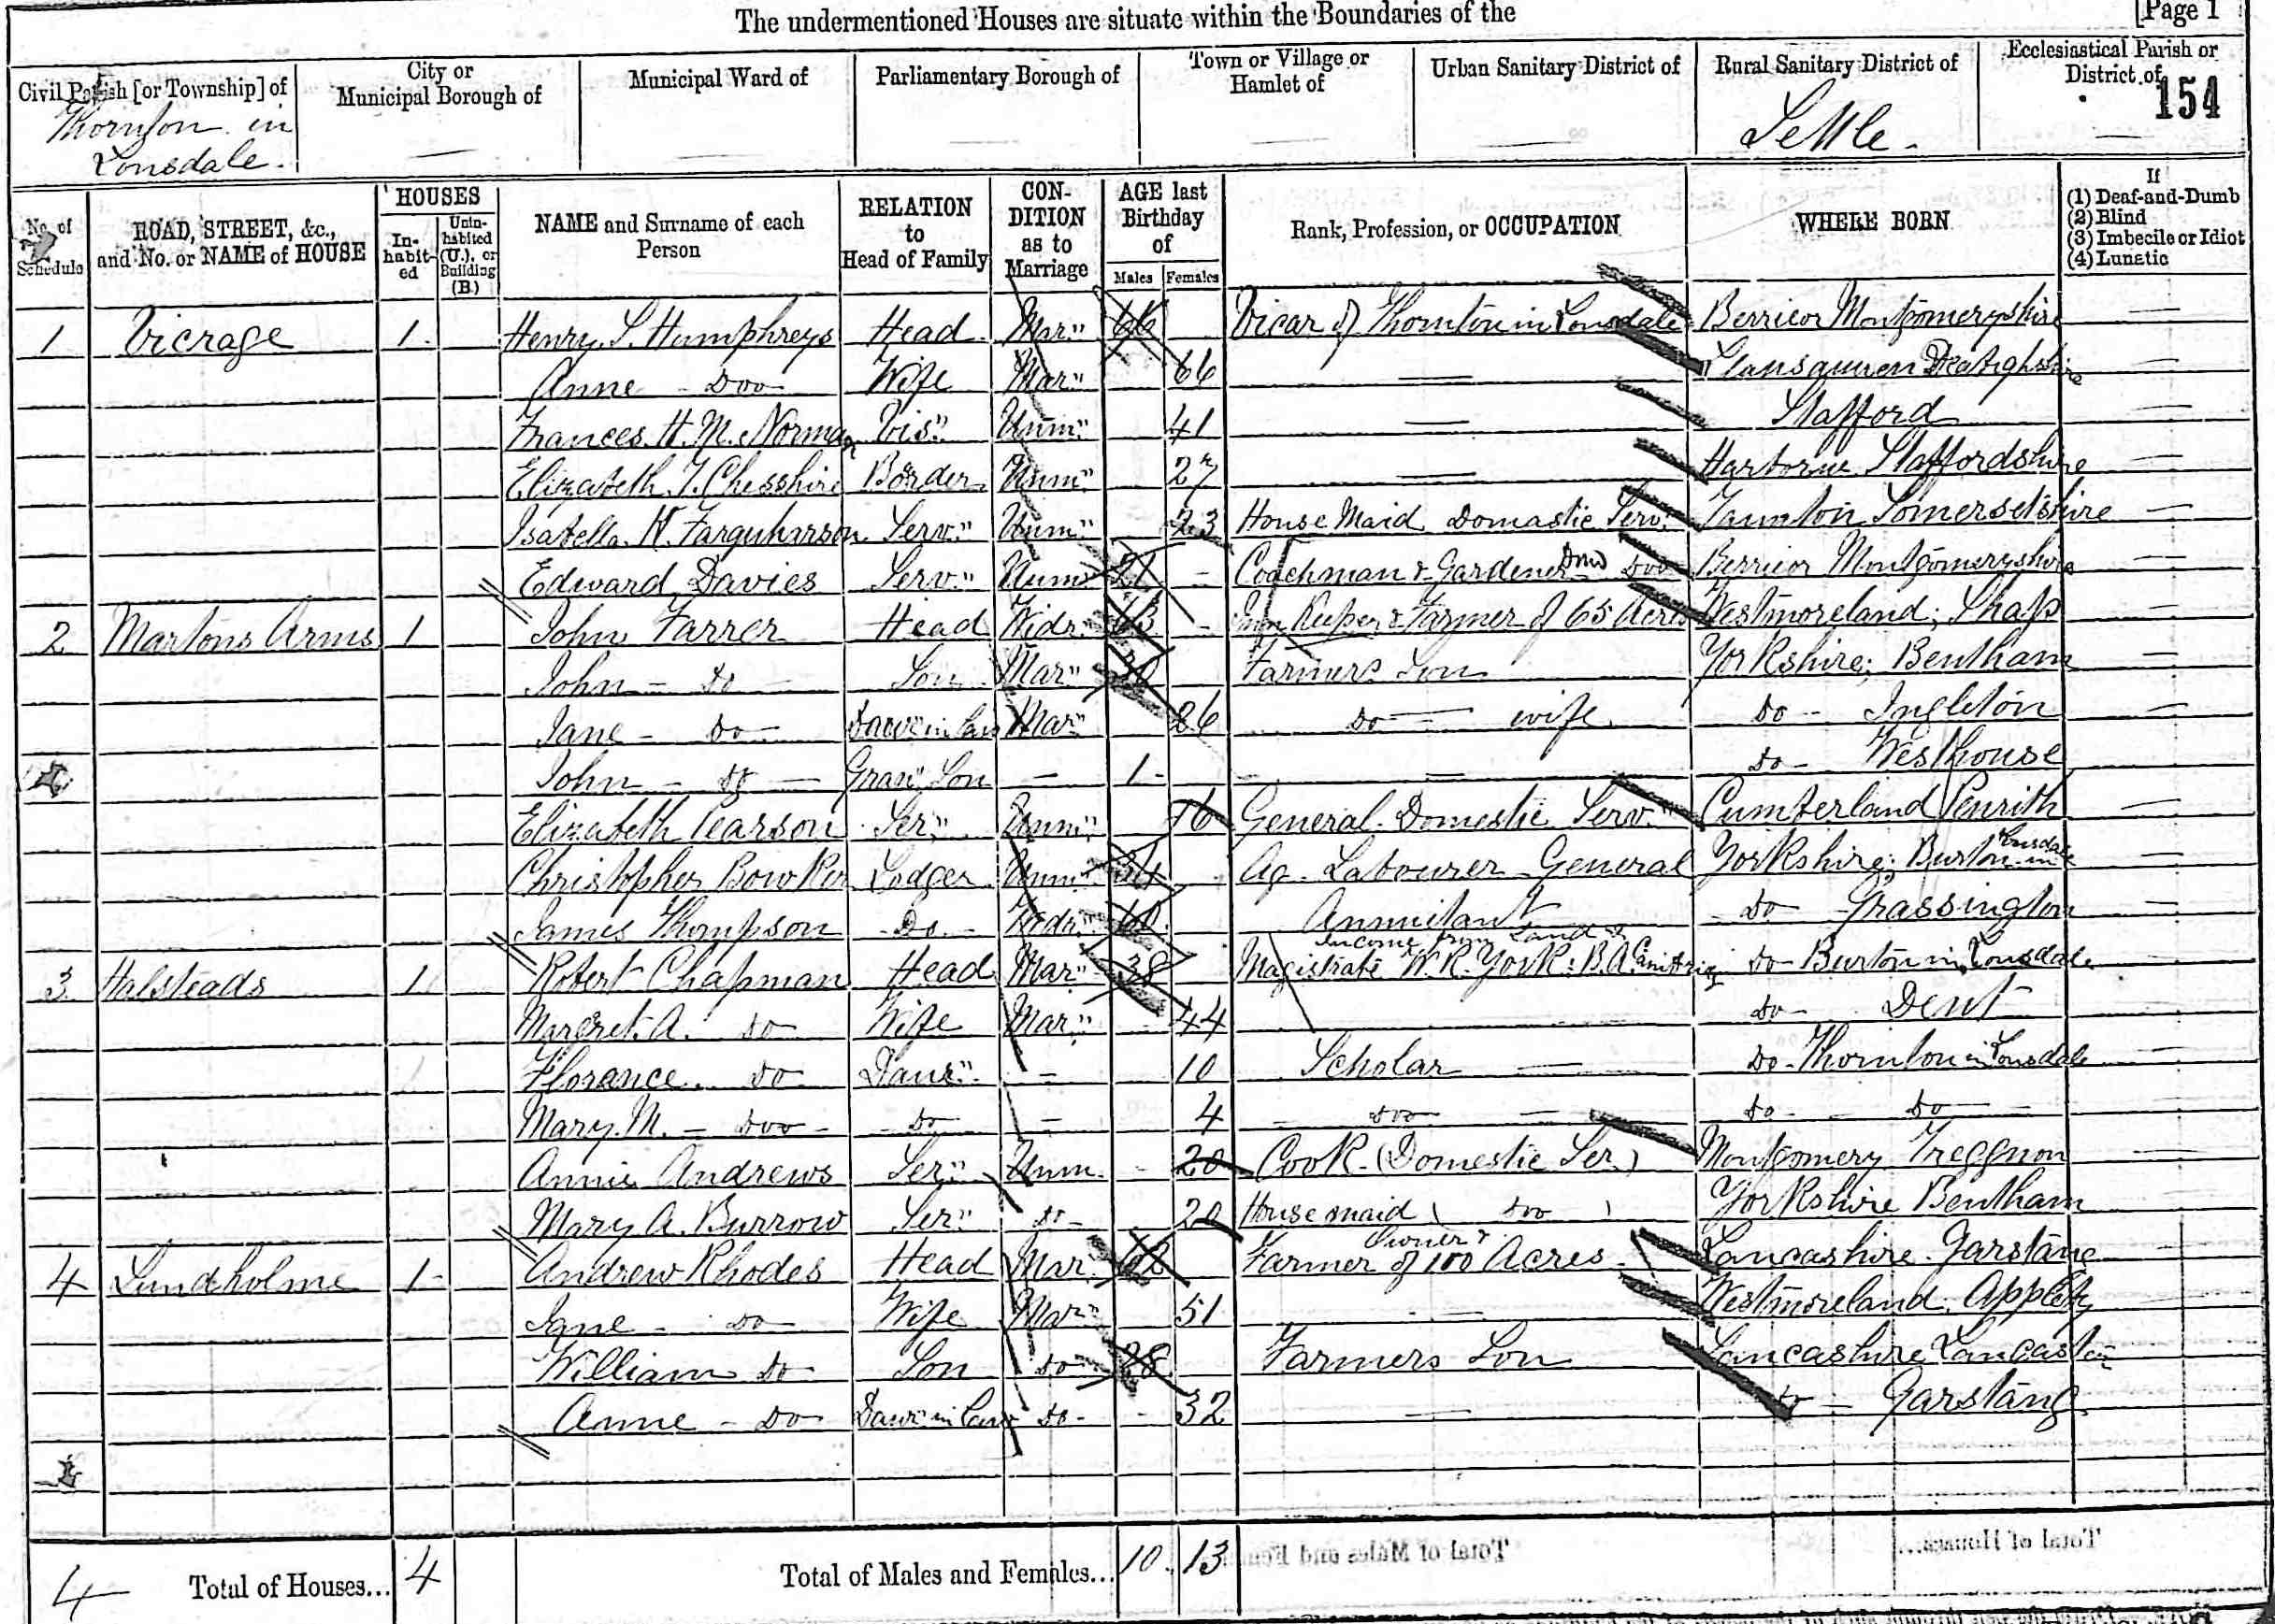 The undermentioned Houses are situate within the Boundaries of the
[Page 1
Civil Parish [or Township] of
Thornton in
Lonsdale.
City or
Municipal Borough of
Municipal Ward of
Parliamentary Borough of
Town or Village or
Hamlet of
Urban Sanitary District of
Rural Sanitary District of
Settle.
Ecclesiastical Parish or
District of
154
No. of
Schedule
ROAD, STREET, &c.,
and No. or NAME of HOUSE
HOUSES
In-
habit-
ed
Unin-
habited
(U.), or
Building
(B.)
NAME and Surname of each
Person
RELATION
to
Head of Family
CON-
DITION
as to
Marriage
AGE last
Birthday
of
Males Females
Rank, Profession, or OCCUPATION
WHERE BORN
If
(1) Deaf-and-Dumb
(2) Blind
(3) Imbecile or Idiot
(4) Lunatic
1 Vicrage 1 Henry S. Humphreys Head Mar" 66 Vicar of Thornton in Lonsdale Berrieor Montgomeryshire
Anne Doo Wife Mar" 66
Frances H. M. Norman Vis" Unm" 41 Stafford
Elizabeth J. Chesshire Border Unm" 27 Harborne Staffordshire
Isabella K. Farquharson Serv" Unm" 23 House Maid Domastic Serv. Taunton Somersetshire
Edward Davies Serv" Unm" Coachman & Gardener Dom Doo Berrieor Montgomeryshire
2 Martons Arms 1 John Farrer Head Widr. 63 Inn Keeper & Farmer of 65 Acres Westmoreland; Shap
John - Do Son Mar" Farmers Son Yorkshire; Bentham
Jane - Do Dawr in Law Mar" 26 Do wife Do Ingleton
John - Do Gran" Son 1 Do Westhouse
Elizabeth Pearson Ser" Unm" 16 General Domestic Serv." Cumberland Penrith
Christopher Bowker Lodger Unm" 24 Ag. Labourer General Yorkshire; Burton in Lonsdale
James Thompson Do Widr" Annuitant Do Grassington
Income from Land &
3 Halsteads 1 Robert Chapman Head Mar" 38 Magistrate W.R. York: B.A. Do Burton in Lonsdale
Margret A. Do Wife Mar" 44 Do Dent
Florance Do Daur" 10 Scholar Do Thornton in Lonsdale
Mary M. - Doo Do 4 Doo Do Do
Annie Andrews Ser" Unm 20 Cook (Domestic Ser.) Montgomery Treggnon
Mary A. Burrow Ser" Do 20 House maid ( Doo ) Yorkshire Bentham
Owner &
4 Lundholme 1 Andrew Rhodes Head Mar" 62 Farmer of 100 Acres Lancashire Garstang
Jane - Do Wife Mar" 51 Westmoreland, Appleby
William Do Son Do 28 Farmers Son Lancashire Lancaster
Anne - Do Dawr in Law Do 32 Do Garstang
4 Total of Houses... 4 Total of Males and Females... 10 13